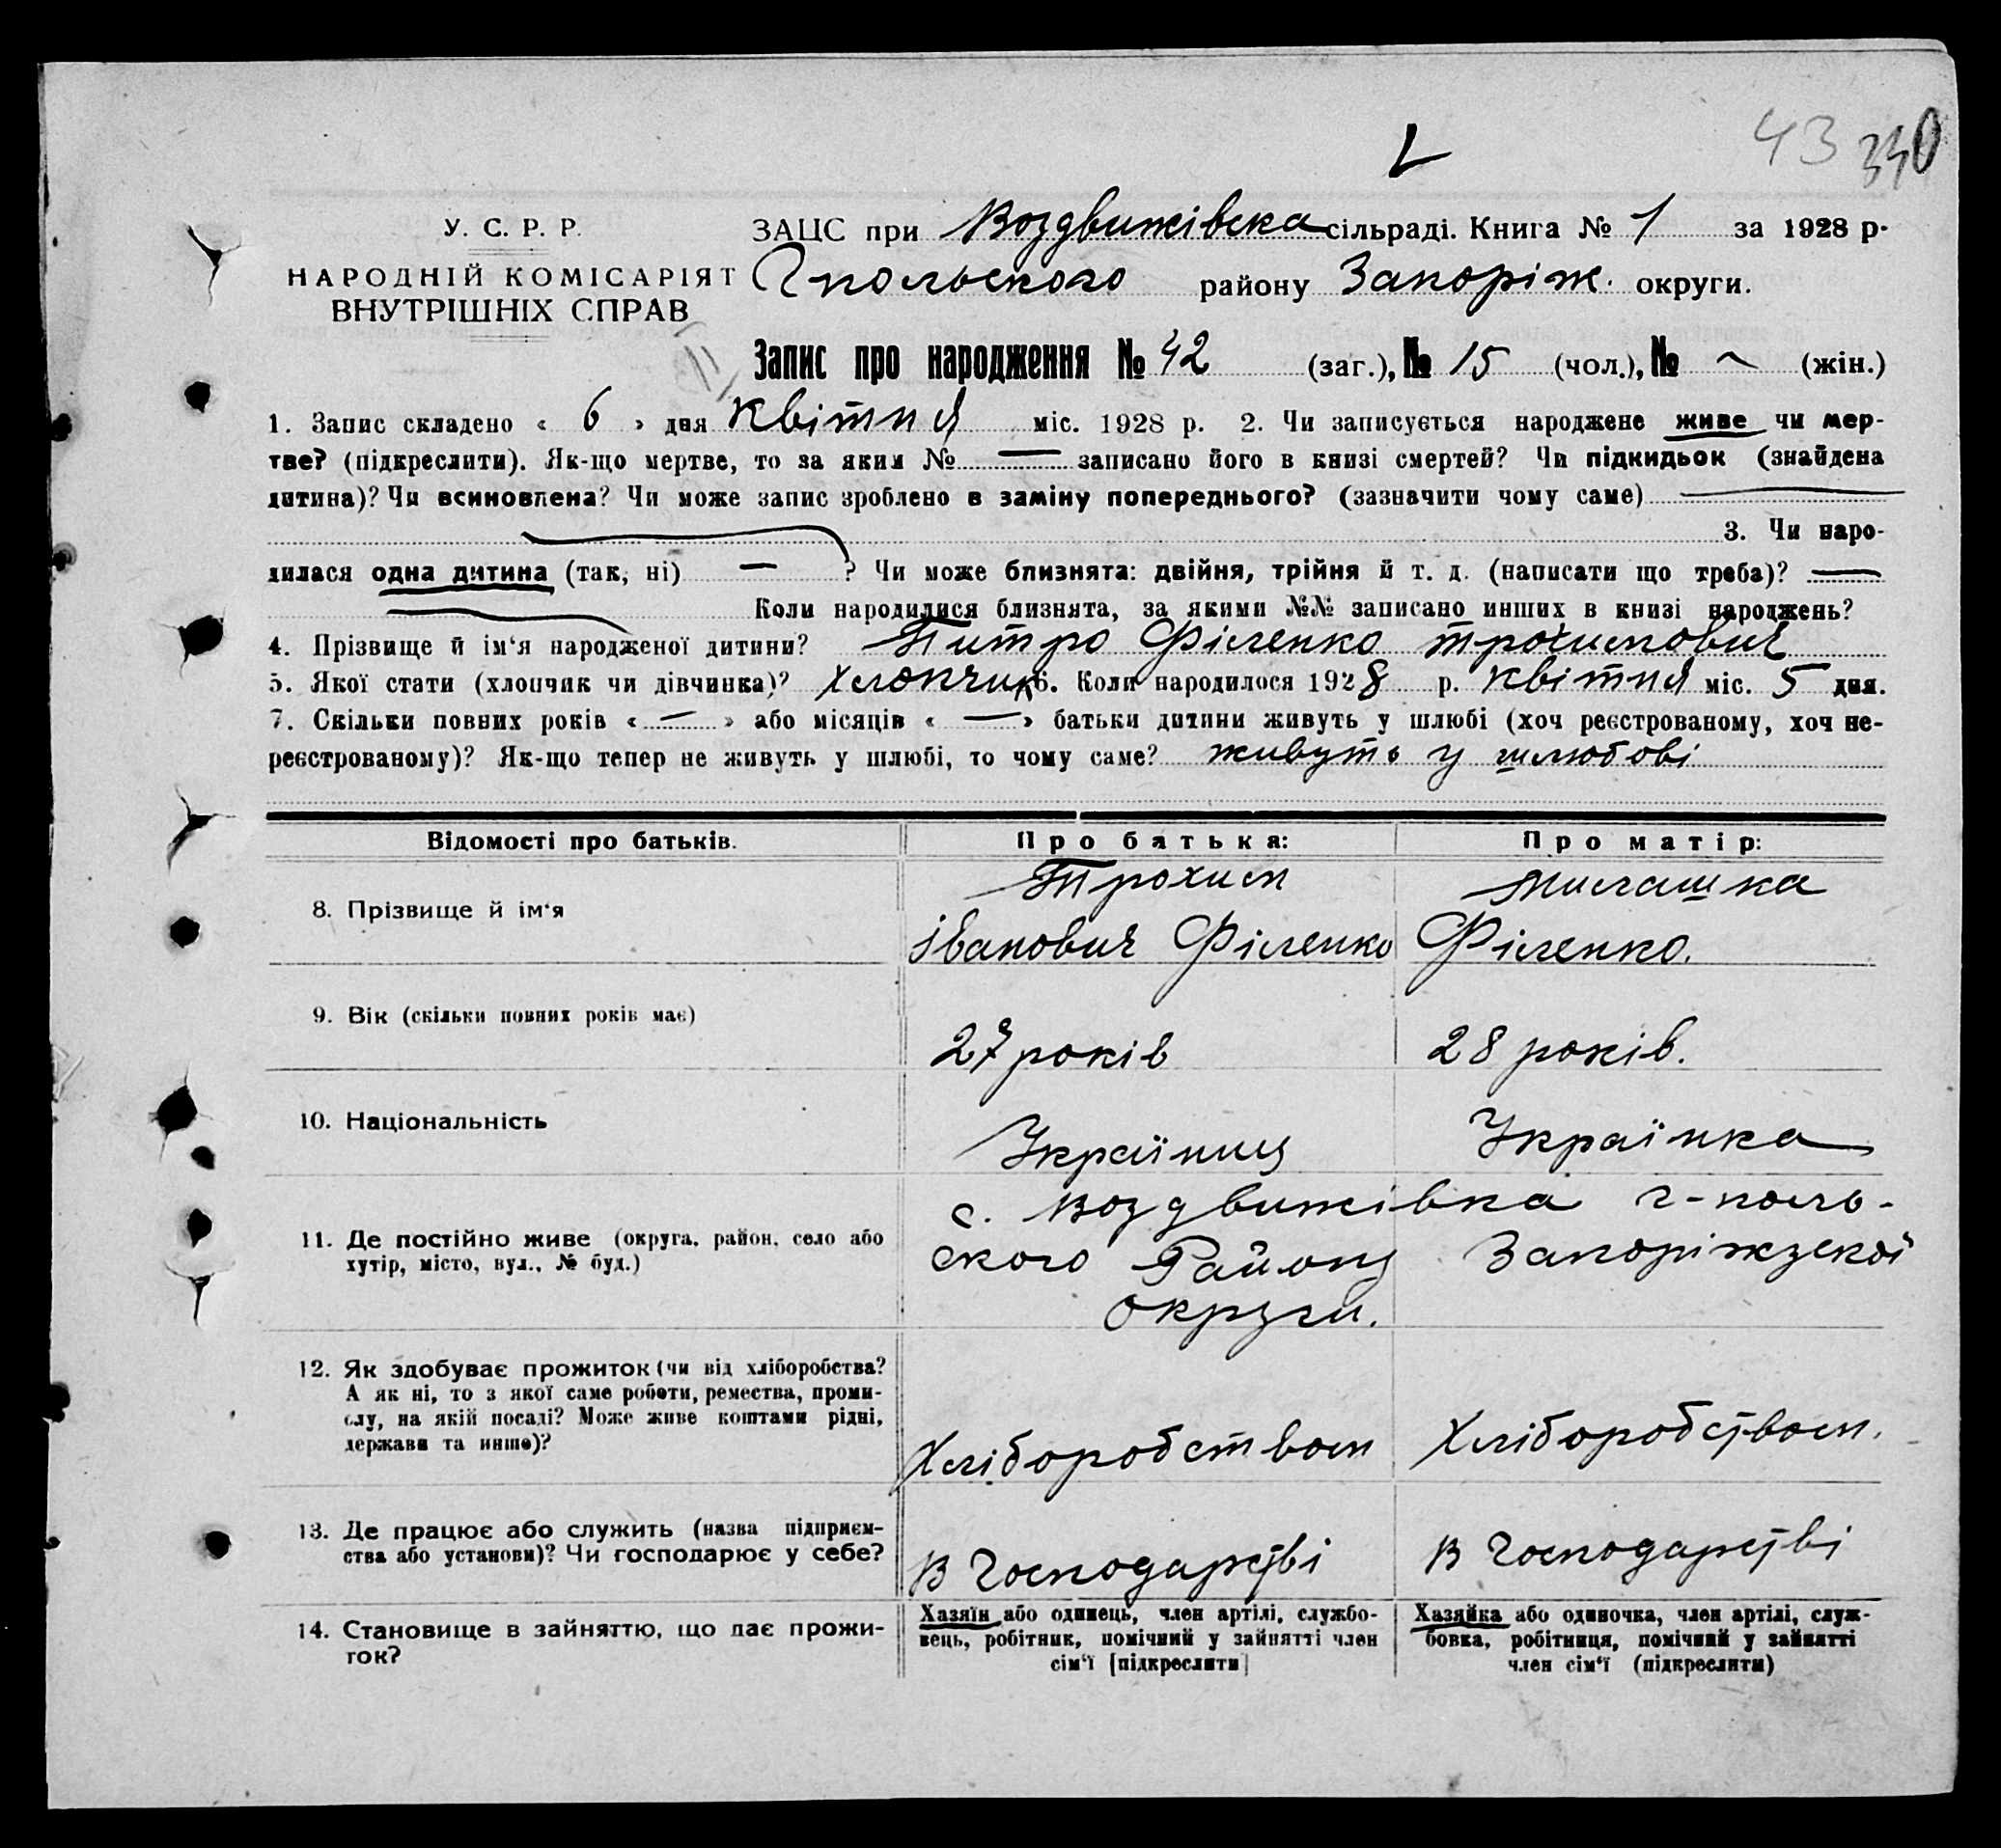 43 340
У. С. Р. Р.
НАРОДНІЙ КОМІСАРІЯТ
ВНУТРІШНІХ СПРАВ
ЗАЦС при Воздвижівска сільраді. Книга № 1 за 1928 р.
Гпольского району Запоріж. округи.
Запис про народження № 42 (заг.), № 15 (чол.), № (жін.)
1. Запис складено « 6 » дня Квітня міс. 1928 р. 2. Чи записується народжене живе чи мер-
тве? (підкреслити). Як-що мертве, то за яким № — записано його в книзі смертей? Чи підкидьок (знайдена
дитина)? Чи всиновлена? Чи може запис зроблено в заміну попереднього? (зазначити чому саме)
3. Чи наро-
дилася одна дитина (так, ні) — ? Чи може близнята: двійня, трійня й т. д. (написати що треба)? —
Коли народилися близнята, за якими №№ записано инших в книзі народжень?
4. Прізвище й ім'я народженої дитини? Питро Філенко трохимович
5. Якої стати (хлопчик чи дівчинка)? Хлопчик 6. Коли народилося 1928 р. квітня міс. 5 дня.
7. Скільки повних років « — » або місяців « — » батьки дитини живуть у шлюбі (хоч реєстрованому, хоч не-
реєстрованому)? Як-що тепер не живуть у шлюбі, то чому саме? живуть у шлюбові
Відомості про батьків. Про батька: Про матір:
8. Прізвище й ім'я
Трохим
Іванович Філенко
Милашка
Філенко.
9. Вік (скільки повних років має)
27 років
28 років.
10. Національність
Україниц
Українка
11. Де постійно живе (округа, район, село або
хутір, місто, вул., № буд.)
с. Воздвижівка г-поль-
ского Району Запоріжзскої
округи.
12. Як здобуває прожиток (чи від хліборобства?
А як ні, то з якої саме роботи, ремества, проми-
слу, на якій посаді? Може живе коштами рідні,
держави та инше)?
Хліборобством
Хліборобством.
13. Де працює або служить (назва підприєм-
ства або установи)? Чи господарює у себе?
В Господарстві
В Господарстві
14. Становище в зайняттю, що дає прожи-
ток?
Хазяїн або одинець, член артілі, службо-
вець, робітник, помічний у зайнятті член
сім'ї [підкреслити]
Хазяйка або одиночка, член артілі, служ-
бовка, робітниця, помічний у зайнятті
член сім'ї (підкреслити)